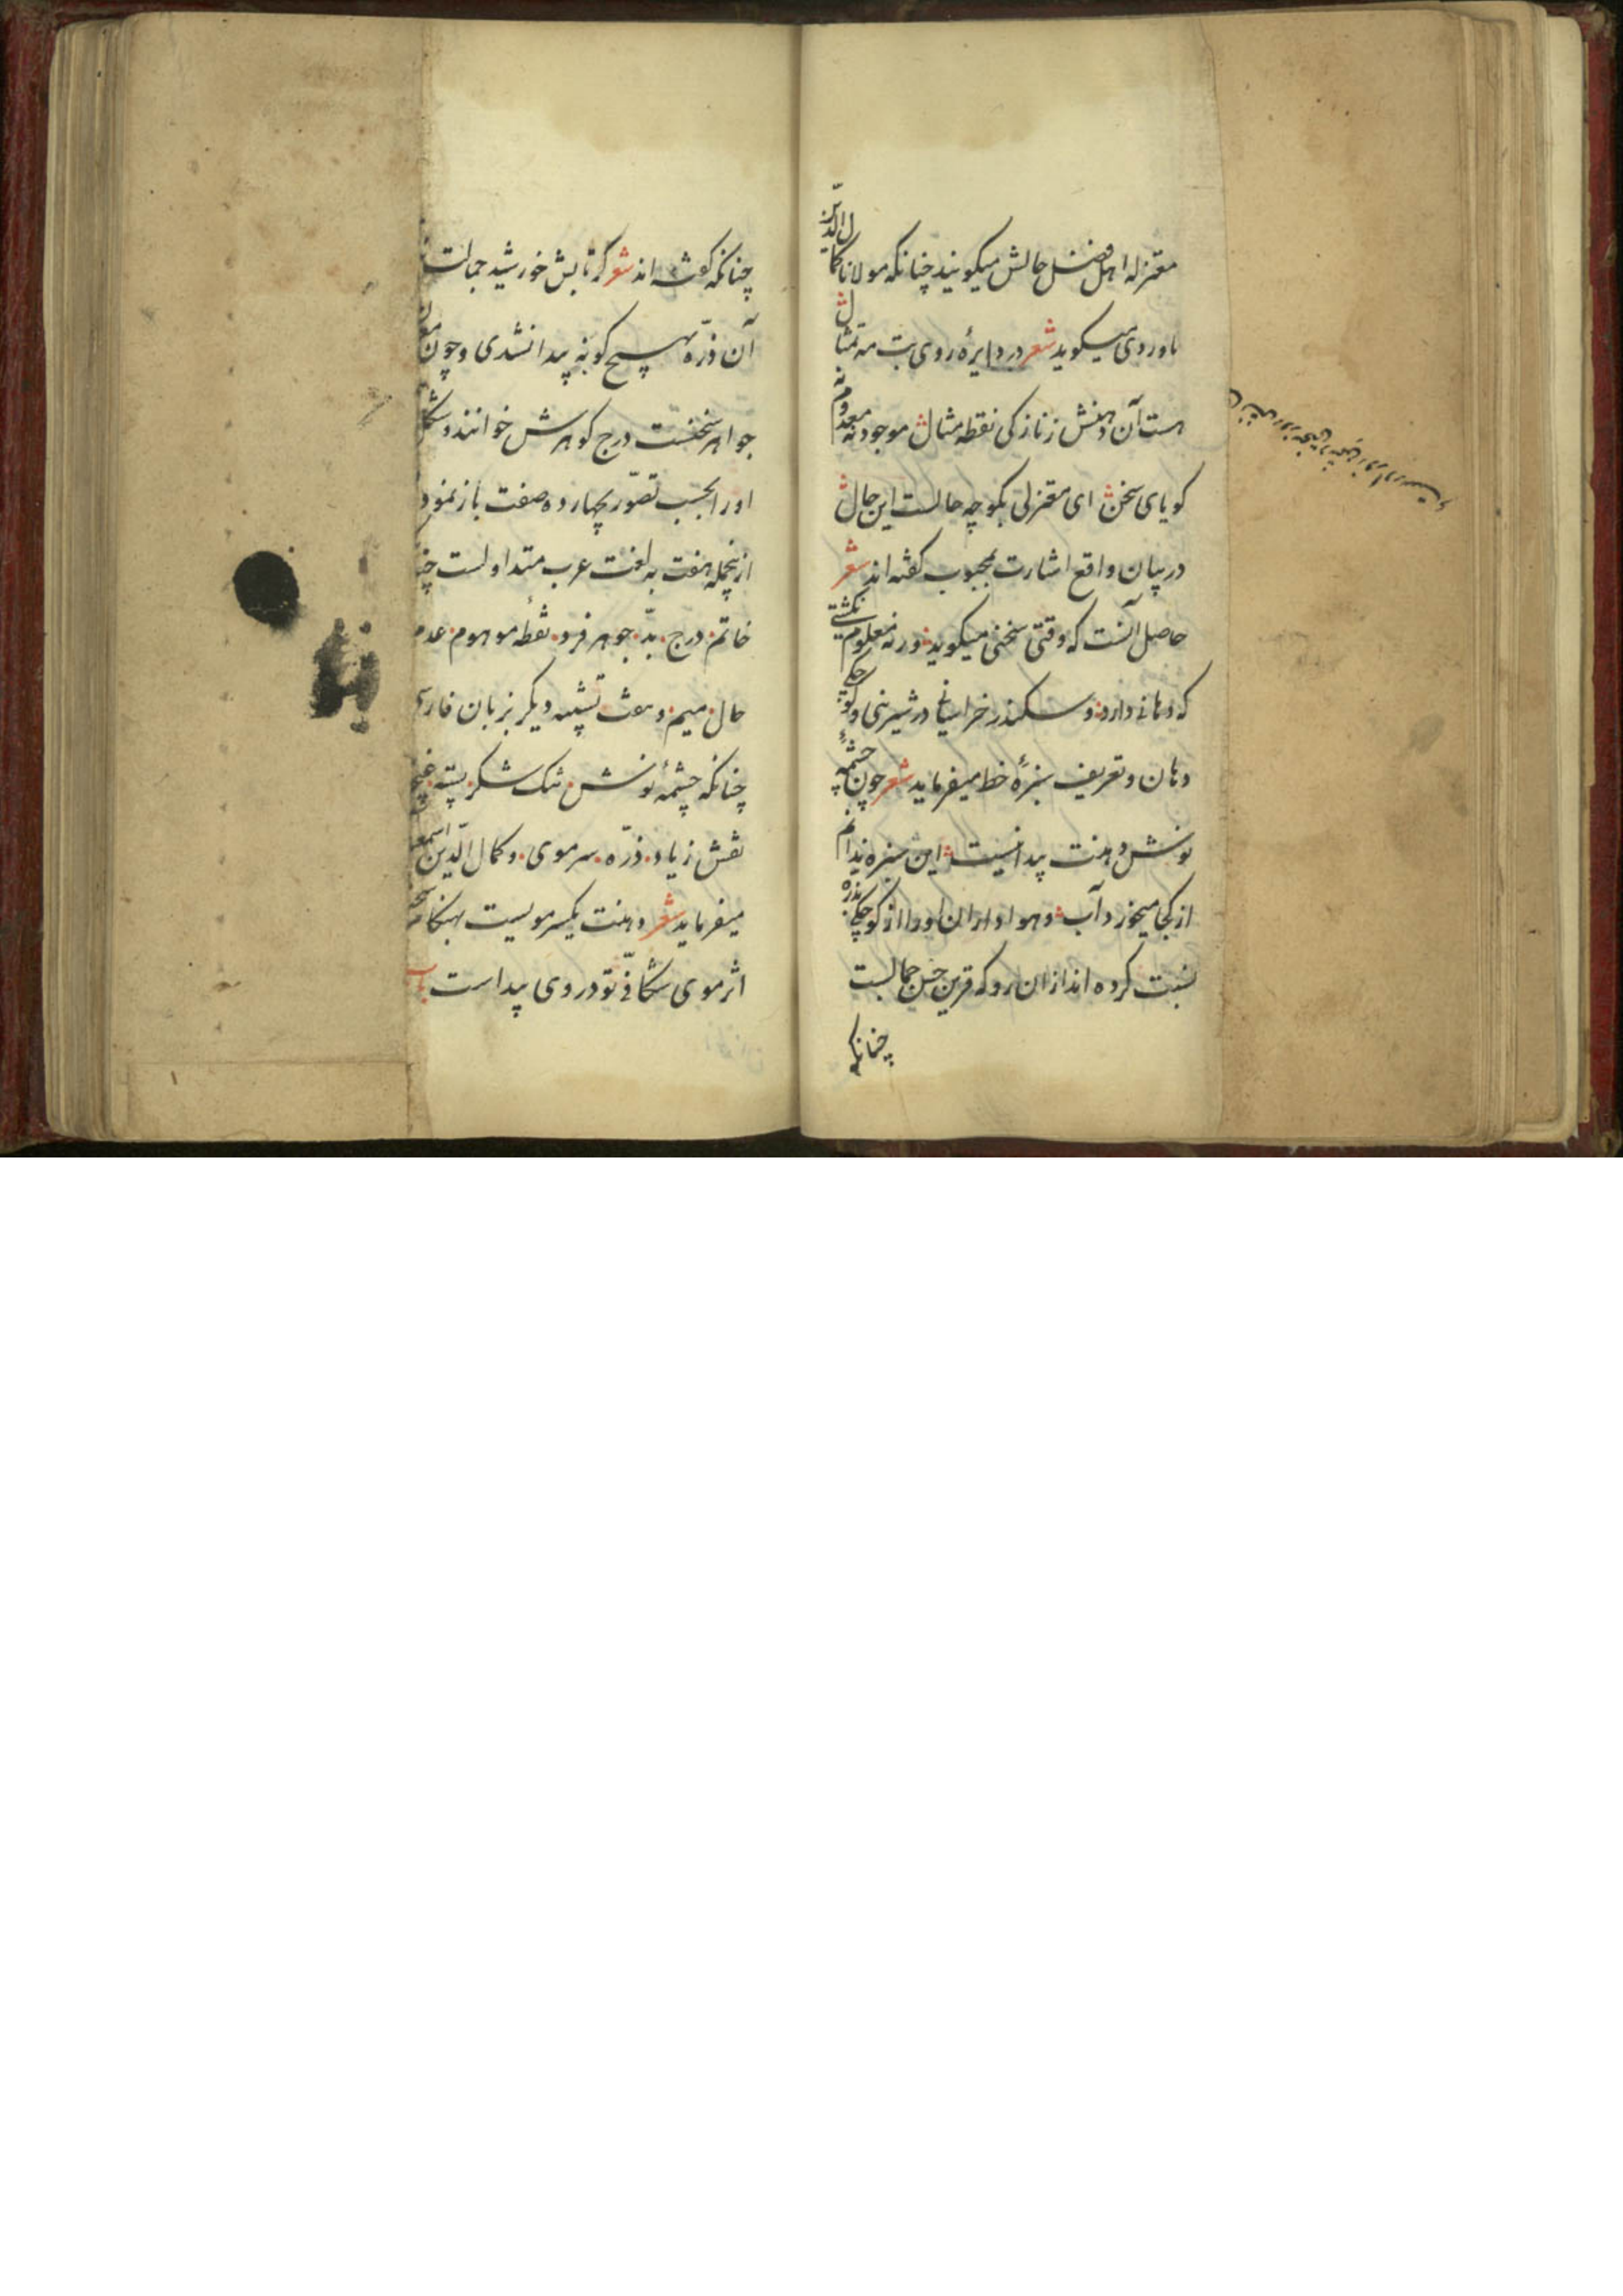 معتزله اهل فضل حالش میکویند چنانکه مولانا کمال الدّین
باوردی میکوید شعر در دایرهٔ روی بت مه تمثال
هست آن دهنش زنازکی نقطه مثال موجود نه معدوم نه
کویای سخن ای معتزلی بکو چه حالست این حال
در بیان واقع اشارت بمحبوب کفته اند شعر
حاصل آنست که وقتی سخنی میکوید ورنه معلوم نکشتی
که دهانی دارد و سکندر خراسانی در شیرینی و کوچکی
دهان و تعریف سبزهٔ خط میفرماید شعر چون چشمهٔ
نوش دهنت پیدا نیست این سبزه ندانم
از کجا میخورد آب و هواداران اورا از کوچکی بذره
نسبت کرده اند ازان رو که قرین حسن جمالست
چنانکه
چنانکه کفته اند شعر کر تابش خورشید جمالت
آن ذرّه بهیچ کونه پیدا نشدی و چون معدن
جواهر سخنست درج کوهرش خوانند و شکل
اورا بحسب تصوّر بچهارده صفت باز نمود
ازینجمله هفت به لغت عرب متداولست
خاتم درج بدّ جوهر فرد نقطهٔ موهوم عدم
حال میم و هفت تشبیه دیکر بزبان فارسی
چنانکه چشمهٔ نوش تنک شکر پسته غنچه
نقش زیاد ذرّه سر موی و کمال الدّین اسمعیل
میفرماید شعر دهنت یکسر مویست بهنکام سخن
اثر موی شکافیّ تو در وی پیداست باب